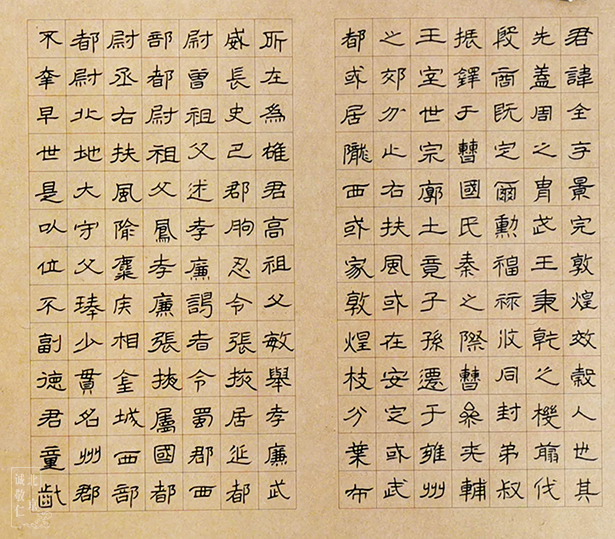 君諱全字景完敦煌效穀人也其
先蓋周之冑武王秉乾之機翦伐
殷商既定爾勳福祿攸同封弟叔
振鐸于曹國氏秦之際曹參夾輔
王室世宗廓土竟子孫遷于雍州
之郊分止右扶風或在安定或武
都或居隴西或家敦煌枝分葉布
所在為雄君高祖父敏舉孝廉武
威長史巴郡朐忍令張掖居延都
尉曾祖父述孝廉謁者令蜀郡西
部都尉祖父鳳孝廉張掖屬國都
尉丞右扶風隃麋侯相金城西部
都尉北地大守父琫少貫名州郡
不幸早世是以位不副德君童齔
誠敬仁